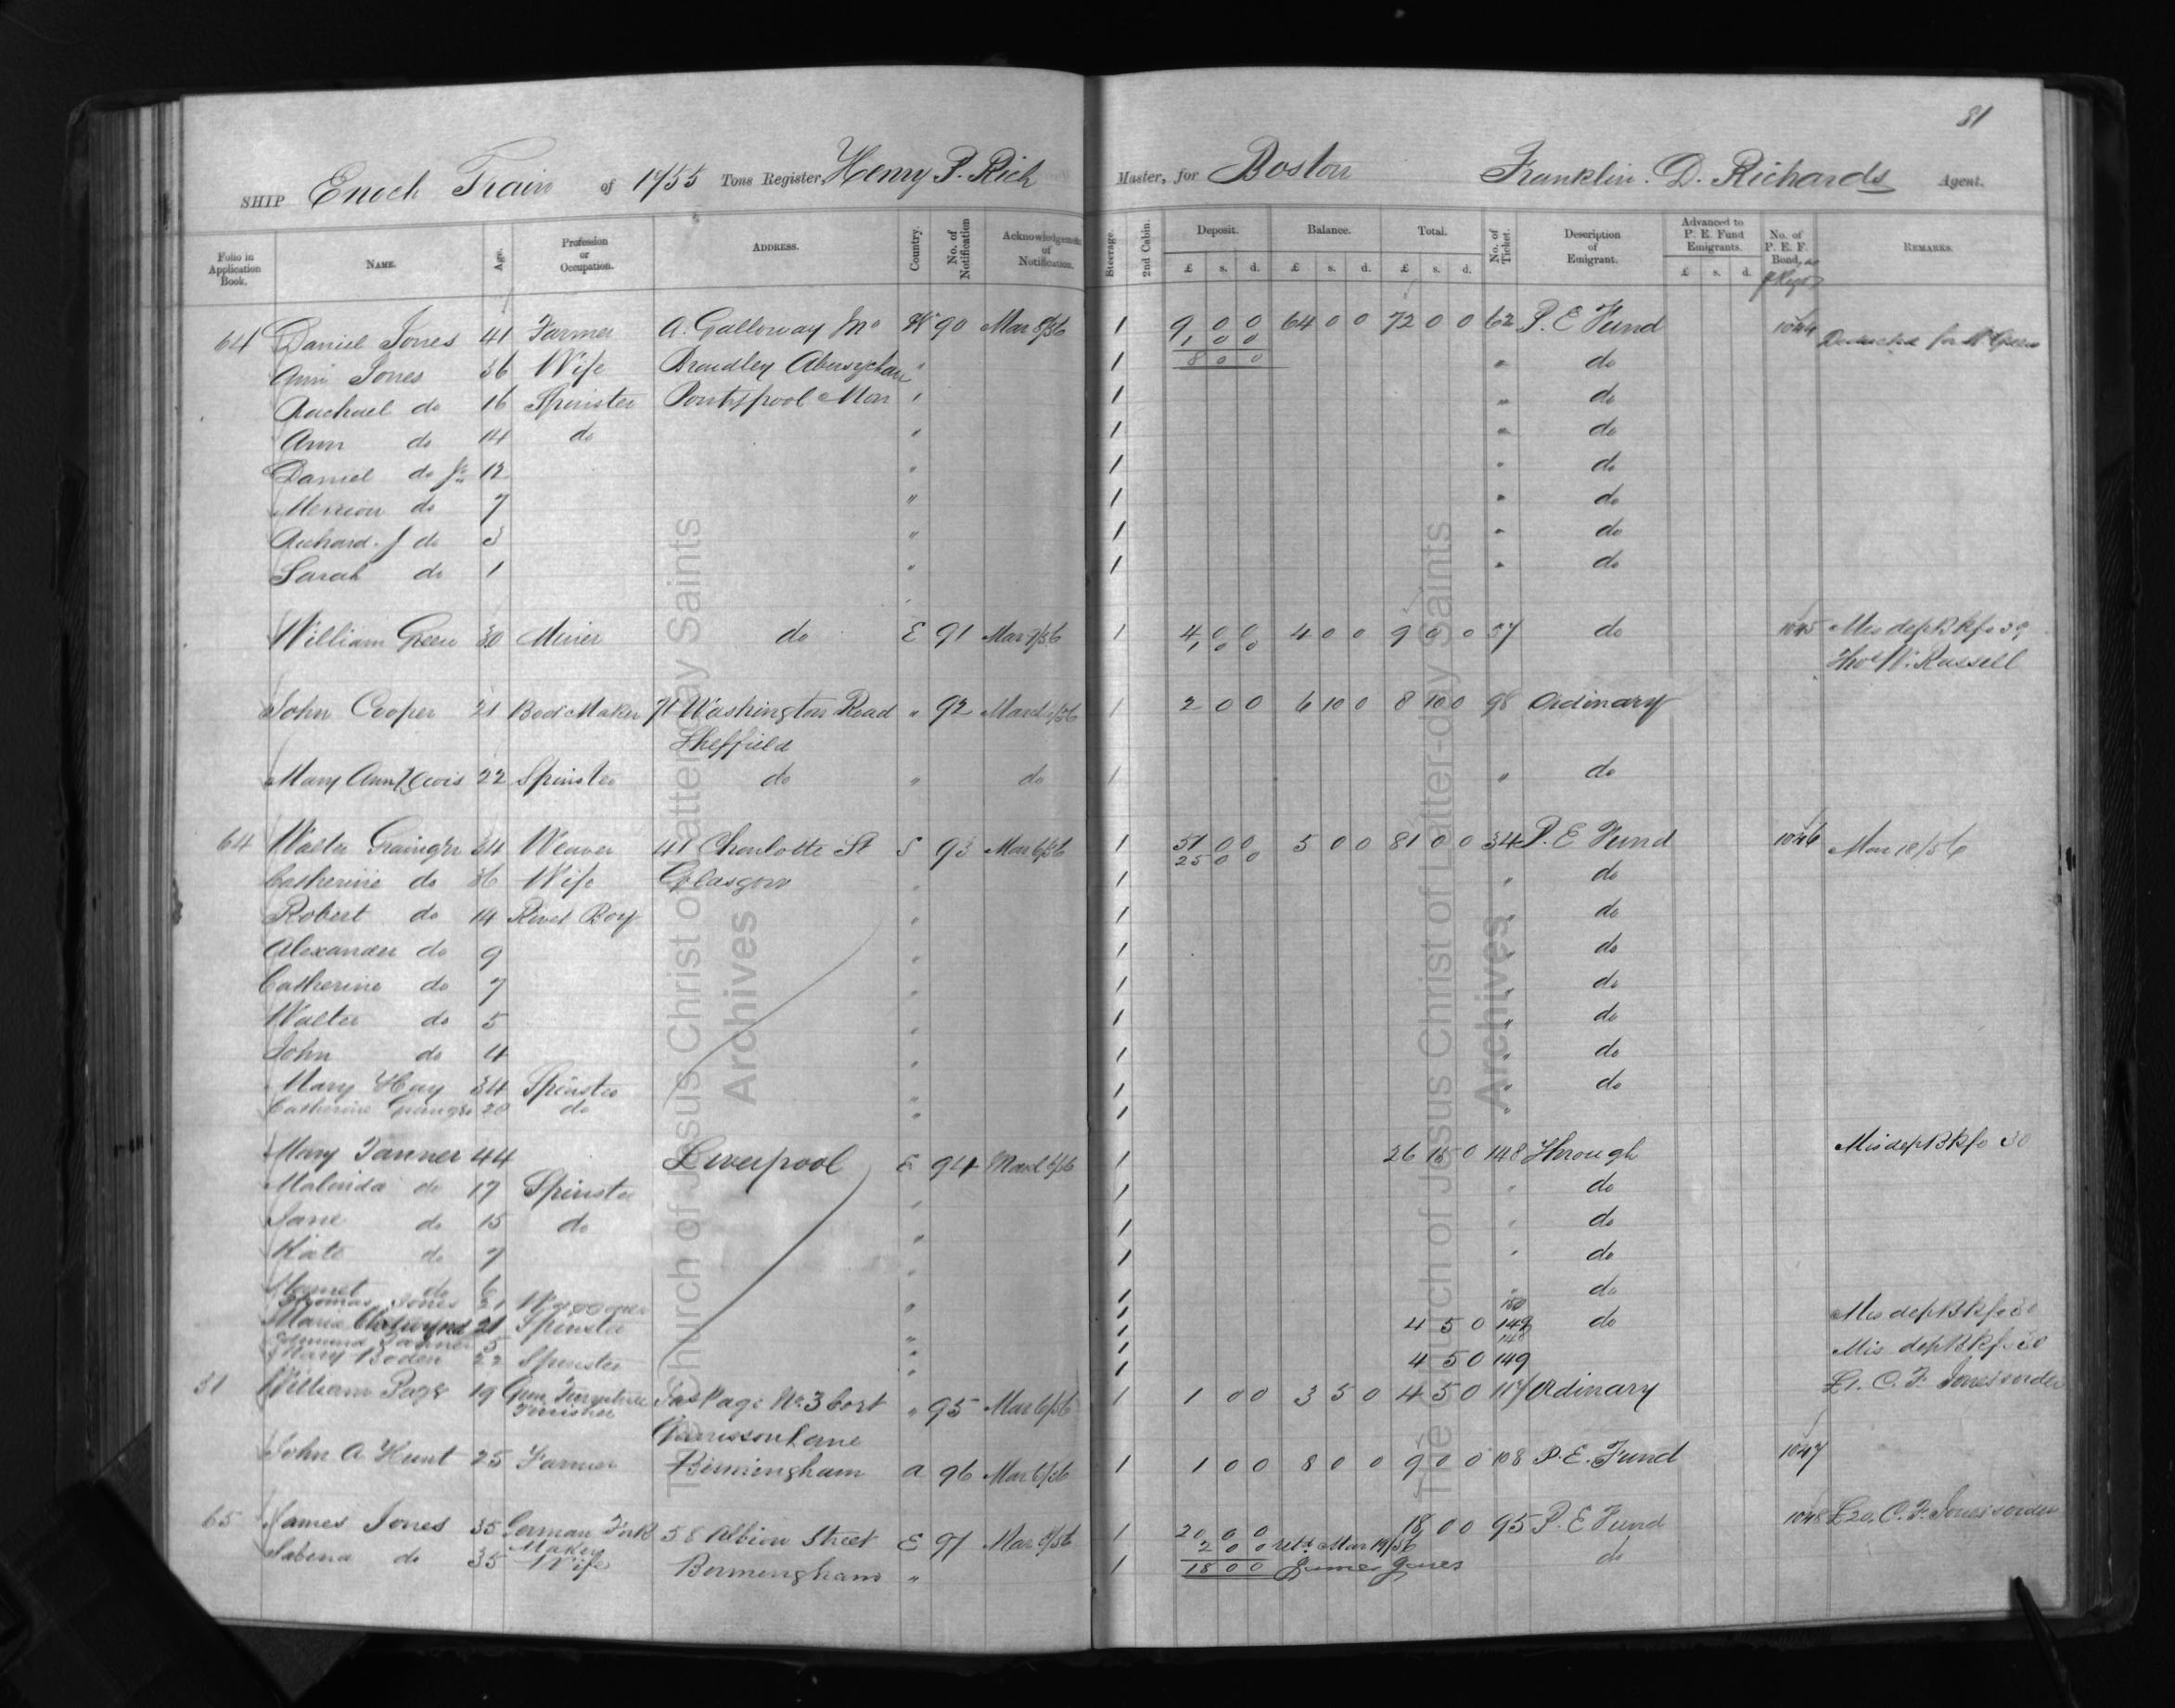 81
SHIP Enoch Train of 1755 Tons Register, Henry P. Rich Master, for Boston Franklin. D. Richards Agent.
Folio in Application Book. NAME. Age. Profession or Occupation. ADDRESS. Country. No. of Notification Acknowledgement of Notification. Steerage. 2nd Cabin. Deposit. £ s. d. Balance. £ s. d. Total. £ s. d. No. of Ticket. Description of Emigrant. Advanced to P. E. Fund Emigrants. £ s. d. No. of P. E. F. Bond, REMARKS.
64 Daniel Jones 41 Farmer A. Galloway Mo W 90 Mar 8/56 1 9 0 0 64 0 0 72 0 0 62 P. E Fund 1044 Deducted for
1 0 0
Ann Jones 36 Wife Brandley Abersychan " 1 8 0 0 " do
Rachael do 16 Spinster Pontypool Mon " 1 " do
Ann do 14 do " 1 " do
Daniel do Jr 12 " 1 " do
do 7 " 1 " do
Richard. J do 3 " 1 " do
Sarah do 1 " 1 " do
William Green 30 Miner do E 91 Mar 7/56 1 4 0 0 4 0 0 9 0 0 37 do 1045 Mis dep Bk fo 39
1 0 0 Thos W. Russell
John Cooper 21 Maker 71 Washington Road " 92 March /56 1 2 0 0 6 10 0 8 10 0 98 Ordinary
Sheffield
Mary Ann Lewis 22 Spinster do " do 1 " do
64 Walter Grainger 34 Weaver 41 Charlotte St S 93 Mar 6/56 1 51 0 0 5 0 0 81 0 0 34 P. E Fund 1046 Mar 18/56
25 0 0
Catherine do 36 Wife Glasgow " 1 " do
Robert do 14 Rivet Boy " 1 " do
Alexander do 9 " 1 " do
Catherine do 7 " 1 " do
Walter do 5 " 1 " do
John do 4 " 1 " do
Mary Hay 34 Spinster " 1 " do
Catherine Grainger 20 do " 1 "
Mary Tanner 44 Liverpool E 94 March 6/56 1 26 15 0 148 Through Mis dep Bk fo 30
Malinda do 17 Spinster " 1 " do
Jane do 15 do " 1 " do
Kate do 7 " 1 " do
do 6 1 " do
Thomas Jones 21 " 1 150 Mis dep Bk fo 30
Maria 21 Spinster 1 4 5 0 149 do
Tanner 5 " 1 148 Mis dep Bk fo 30
Mary Boden 22 Spinster " 1 4 5 0 149
31 William Page 19 Gun Furniture Jas Page No. 3 Cort " 95 Mar 6/56 1 1 0 0 3 5 0 4 5 0 117 Ordinary £1. C. F. Jones order
Finisher
Garrison Lane
John A Hunt 25 Farmer Birmingham a 96 Mar 6/56 1 1 0 0 8 0 0 9 0 0 108 P. E. Fund 1047
65 James Jones 35 German Fork 58 Albion Street E 97 Mar 8/56 1 20 0 0 18 0 0 95 P. E Fund 1048 £20. C. F. Jones order
Maker 2 0 0 retd Mar 19/56
Sabena do 35 Wife Bermengham " 1 18 0 0 James Jones do
The Church of Jesus Christ of Latter-day Saints
Archives
The Church of Jesus Christ of Latter-day Saints
Archives